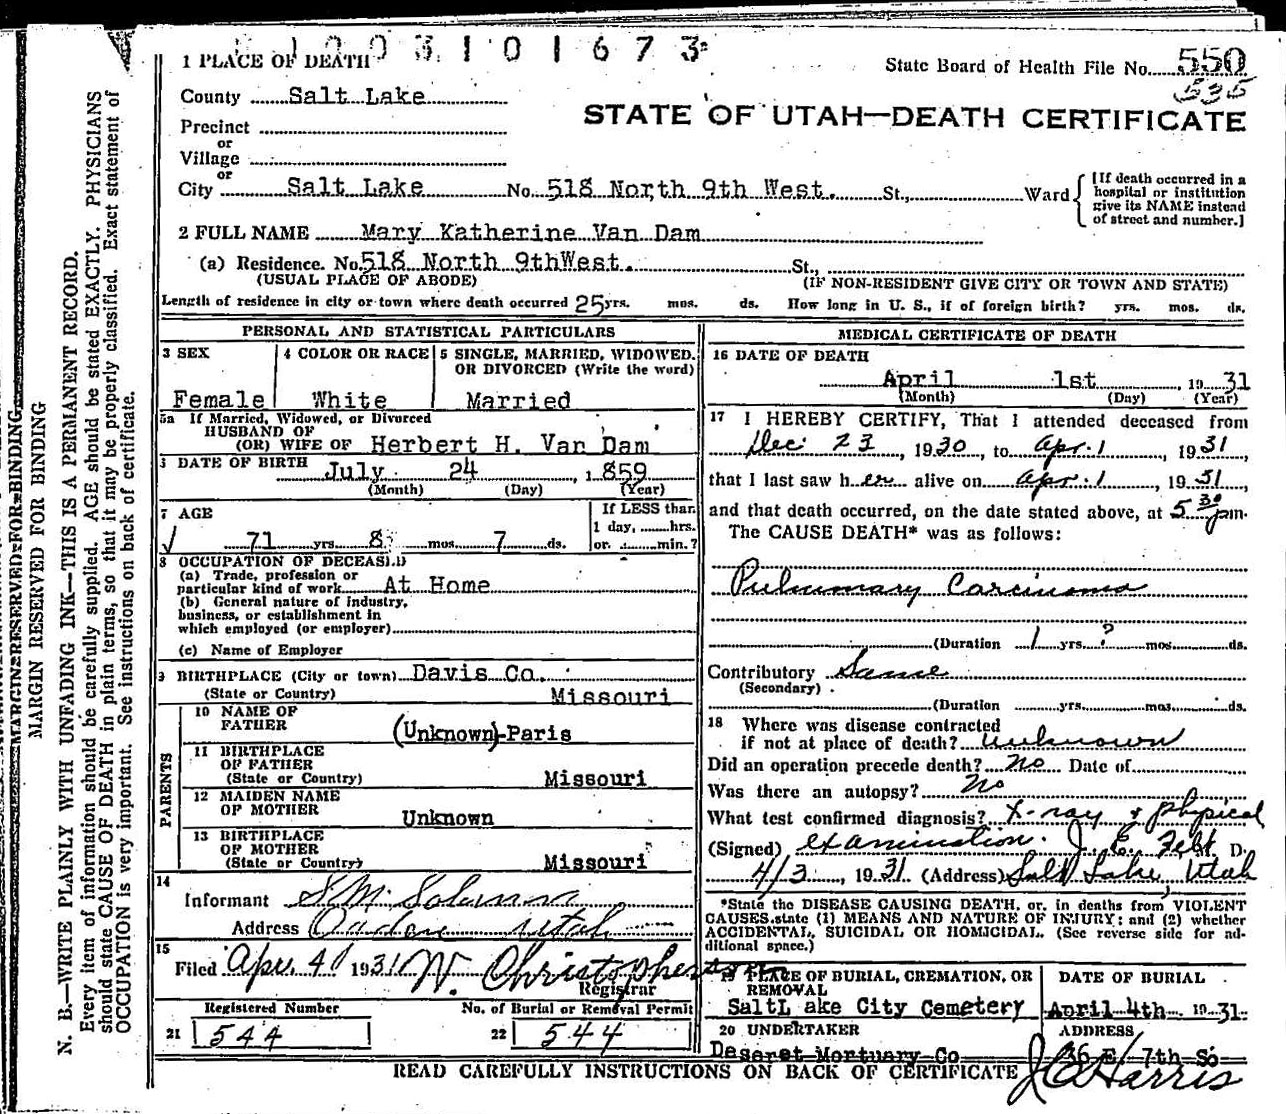 1003101673
1 PLACE OF DEATH
State Board of Health File No. 550
535
County Salt Lake
STATE OF UTAH—DEATH CERTIFICATE
Precinct
or
Village
or
City Salt Lake No. 518 North 9th West. St., Ward
[If death occurred in a hospital or institution give its NAME instead of street and number.]
2 FULL NAME Mary Katherine Van Dam
(a) Residence. No. 518 North 9thWest. St.,
(USUAL PLACE OF ABODE) (IF NON-RESIDENT GIVE CITY OR TOWN AND STATE)
Length of residence in city or town where death occurred 25 yrs. mos. ds. How long in U. S., if of foreign birth? yrs. mos. ds.
PERSONAL AND STATISTICAL PARTICULARS
3 SEX
Female
4 COLOR OR RACE
White
5 SINGLE, MARRIED, WIDOWED, OR DIVORCED (Write the word)
Married
5a If Married, Widowed, or Divorced
HUSBAND OF
(OR) WIFE OF Herbert H. Van Dam
DATE OF BIRTH July 24, 1859
(Month) (Day) (Year)
7 AGE
71 yrs. 8 mos. 7 ds.
If LESS than
1 day, hrs.
or min.?
8 OCCUPATION OF DECEASED
(a) Trade, profession or
particular kind of work At Home
(b) General nature of industry,
business, or establishment in
which employed (or employer)
(c) Name of Employer
9 BIRTHPLACE (City or town) Davis Co.
(State or Country) Missouri
PARENTS
10 NAME OF
FATHER (Unknown)-Paris
11 BIRTHPLACE
OF FATHER
(State or Country) Missouri
12 MAIDEN NAME
OF MOTHER Unknown
13 BIRTHPLACE
OF MOTHER
(State or Country) Missouri
14
Informant
Address Ogden Utah
15
Filed Apr. 4 1931 W. Christopherson
Registrar
Registered Number
21 544
No. of Burial or Removal Permit
22 544
MEDICAL CERTIFICATE OF DEATH
16 DATE OF DEATH
April 1st, 1931
(Month) (Day) (Year)
17 I HEREBY CERTIFY, That I attended deceased from
Dec 23, 1930, to Apr. 1, 1931,
that I last saw her alive on Apr. 1, 1931,
and that death occurred, on the date stated above, at 5 30 pm.
The CAUSE DEATH* was as follows:
Pulmonary Carcinoma
(Duration 1 yrs. ? mos. ds.
Contributory Same
(Secondary)
(Duration yrs. mos. ds.
18 Where was disease contracted
if not at place of death? unknown
Did an operation precede death? No Date of
Was there an autopsy? No
What test confirmed diagnosis? X-ray & physical
(Signed) examination. J. E. Felt M. D.
4/3, 1931 (Address) Salt Lake, Utah
*State the DISEASE CAUSING DEATH, or, in deaths from VIOLENT
CAUSES, state (1) MEANS AND NATURE OF INJURY; and (2) whether
ACCIDENTAL, SUICIDAL OR HOMICIDAL. (See reverse side for ad-
ditional space.)
19 PLACE OF BURIAL, CREMATION, OR REMOVAL
SaltL ake City Cemetery
DATE OF BURIAL
April 4th 1931
20 UNDERTAKER
Deseret Mortuary Co
ADDRESS
36 E 7th So
READ CAREFULLY INSTRUCTIONS ON BACK OF CERTIFICATE
Harris
MARGIN RESERVED FOR BINDING
MARGIN RESERVED FOR BINDING
N. B.—WRITE PLAINLY WITH UNFADING INK—THIS IS A PERMANENT RECORD.
Every item of information should be carefully supplied. AGE should be stated EXACTLY. PHYSICIANS
should state CAUSE OF DEATH in plain terms, so that it may be properly classified. Exact statement of
OCCUPATION is very important. See instructions on back of certificate.